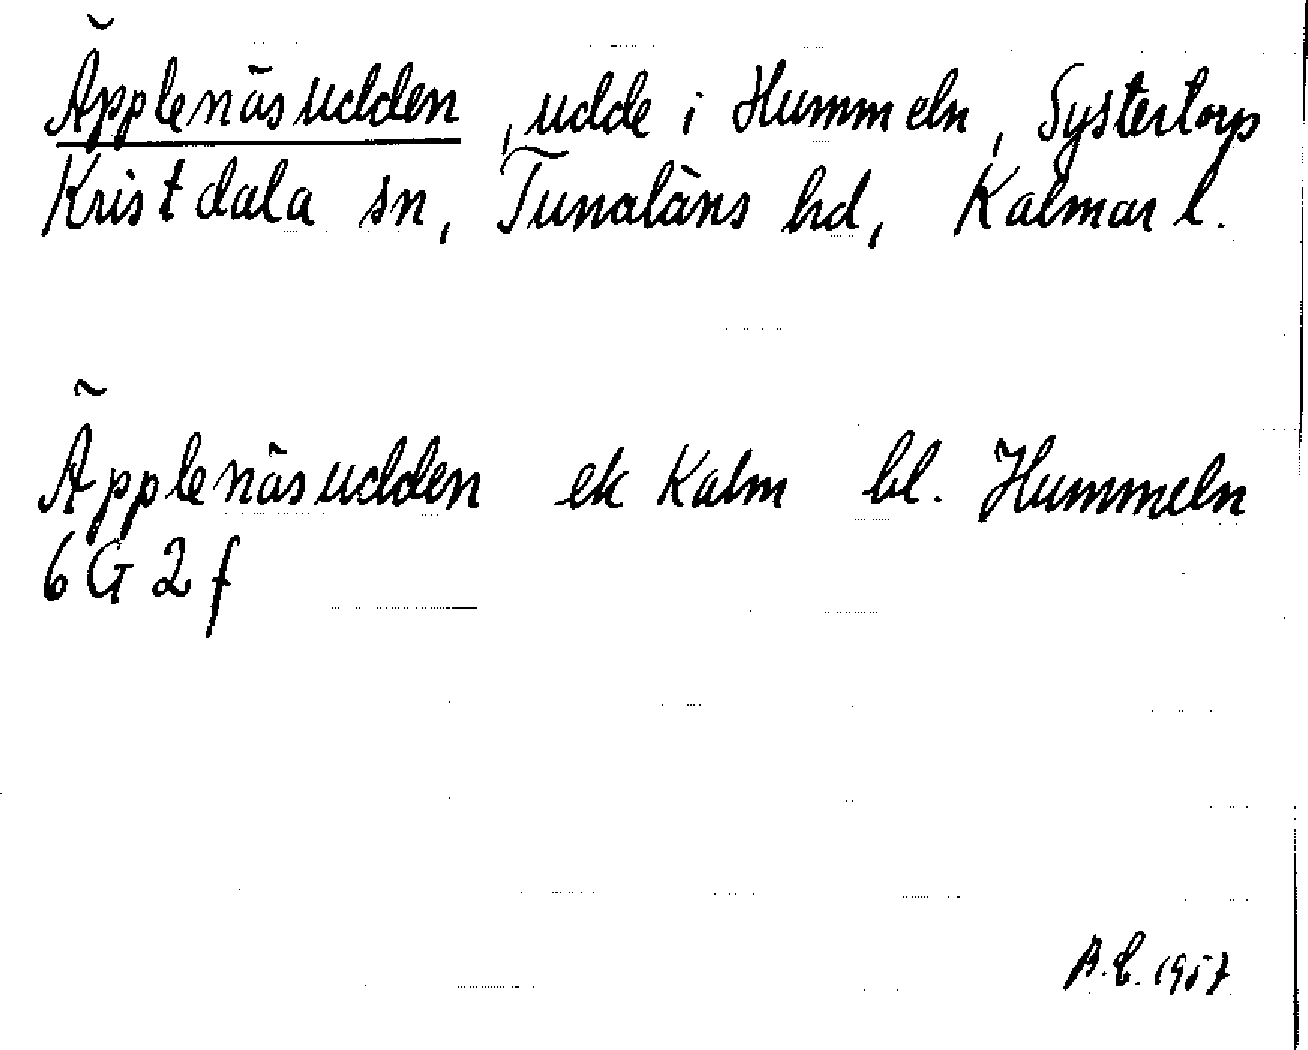 Äpplenäsudden, udde i Hummeln, Systertorp
Kristdala sn, Tunaläns hd, Kalmar l.
Äpplenäsudden ek Kalm bl. Hummeln
6G2f
1957